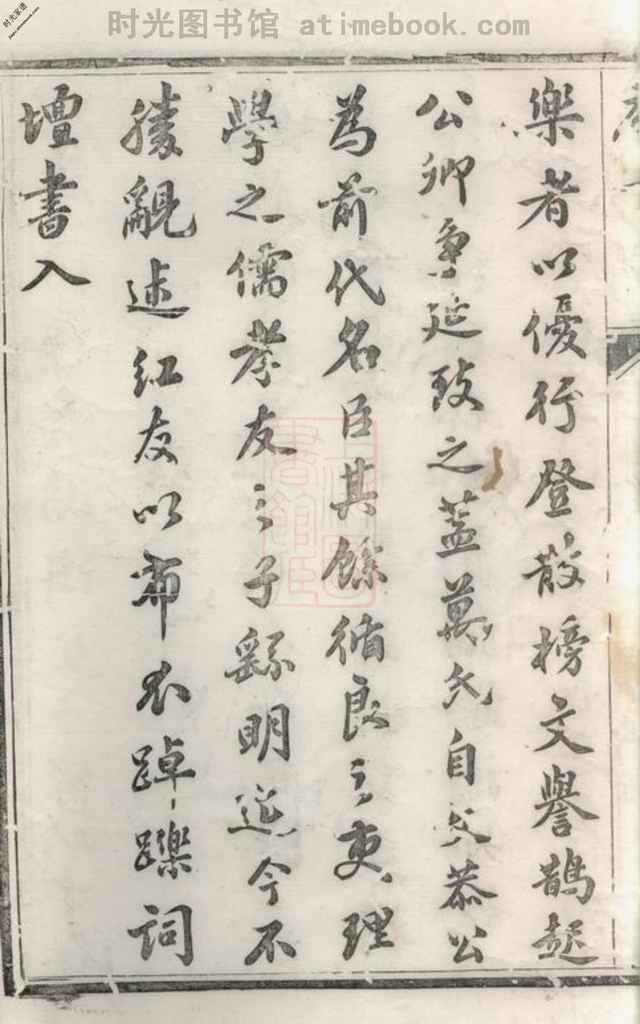 时光图书馆 atimebook.com
樂者以優行登散榜文譽鵲起
公卿爭延致之蓋萬氏自文恭公
為前代名臣其餘循良之吏理
學之儒孝友之子繇明迄今不
勝覼述紅友以布衣踔躒詞
壇書入